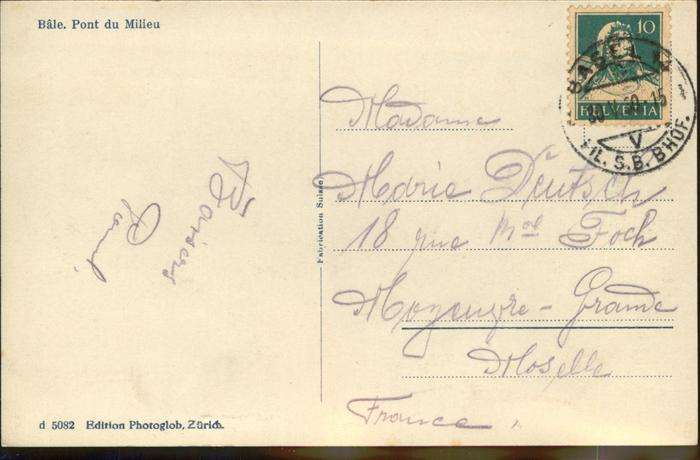 Bâle. Pont du Milieu
10
HELVETIA
BASEL
V
FIL. S.B. BHOF.
Baisers
Madame
Marie Deutsch
18 rue Mal Foch
Moyeuvre-Grande
Moselle
France.
Fabrication Suisse
d 5082 Edition Photoglob, Zürich.